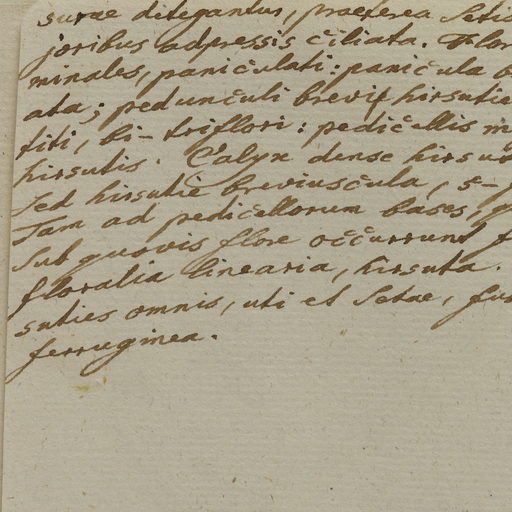 surae ditegantur, praeterea Setis
joribus adpressis ciliata. Flor
minales, paniculati: panicula b
ata; pedunculi brevis hirsutie
titi, bi-triflori: pedicellis m
hirsutis. Calyx dense hirsut
sed hirsutie breviuscula, 5-
Tam ad pedicellorum bases,
sub quovis flore occurrunt f
floralia linearia, hirsuta.
suties omnis, uti et Setae, fus
ferruginea.